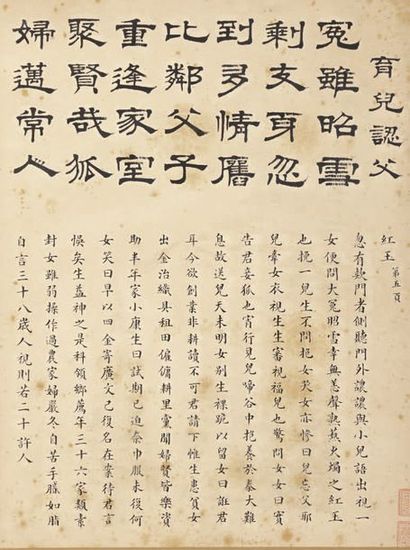 育兒認父
冤雖昭雪
剩支身忽
到多情舊
比鄰父子
重逢家室
聚賢哉狐
婦邁常人
紅玉 第五頁
忽有款門者側聽門外譨譨與小兒語出視一
女便問大冤昭雪幸無恙聲熟蓺火燭之紅玉
也挽一兒生不問抱女哭女亦慘曰兒忘父耶
兒牽女衣視生生審視福兒也驚問女女曰實
告君妾狐也宵行見兒啼谷中抱養於秦大難
息故送兒天未明女別生裸跪以留女曰誑君
耳今欲創業非耕讀不可君請下帷生患貧女
出金治織具租田僱傭耕里黨聞婦賢皆樂資
助半年家小康生曰試期已迫奈巾服未復何
女笑曰早以四金寄廣文已復名在案待君言
悞矣生益神之是科領鄉薦年三十六家類素
封女雖弱操作過農家婦嚴冬自苦手膩如脂
自言三十八歲人視則若二十許人